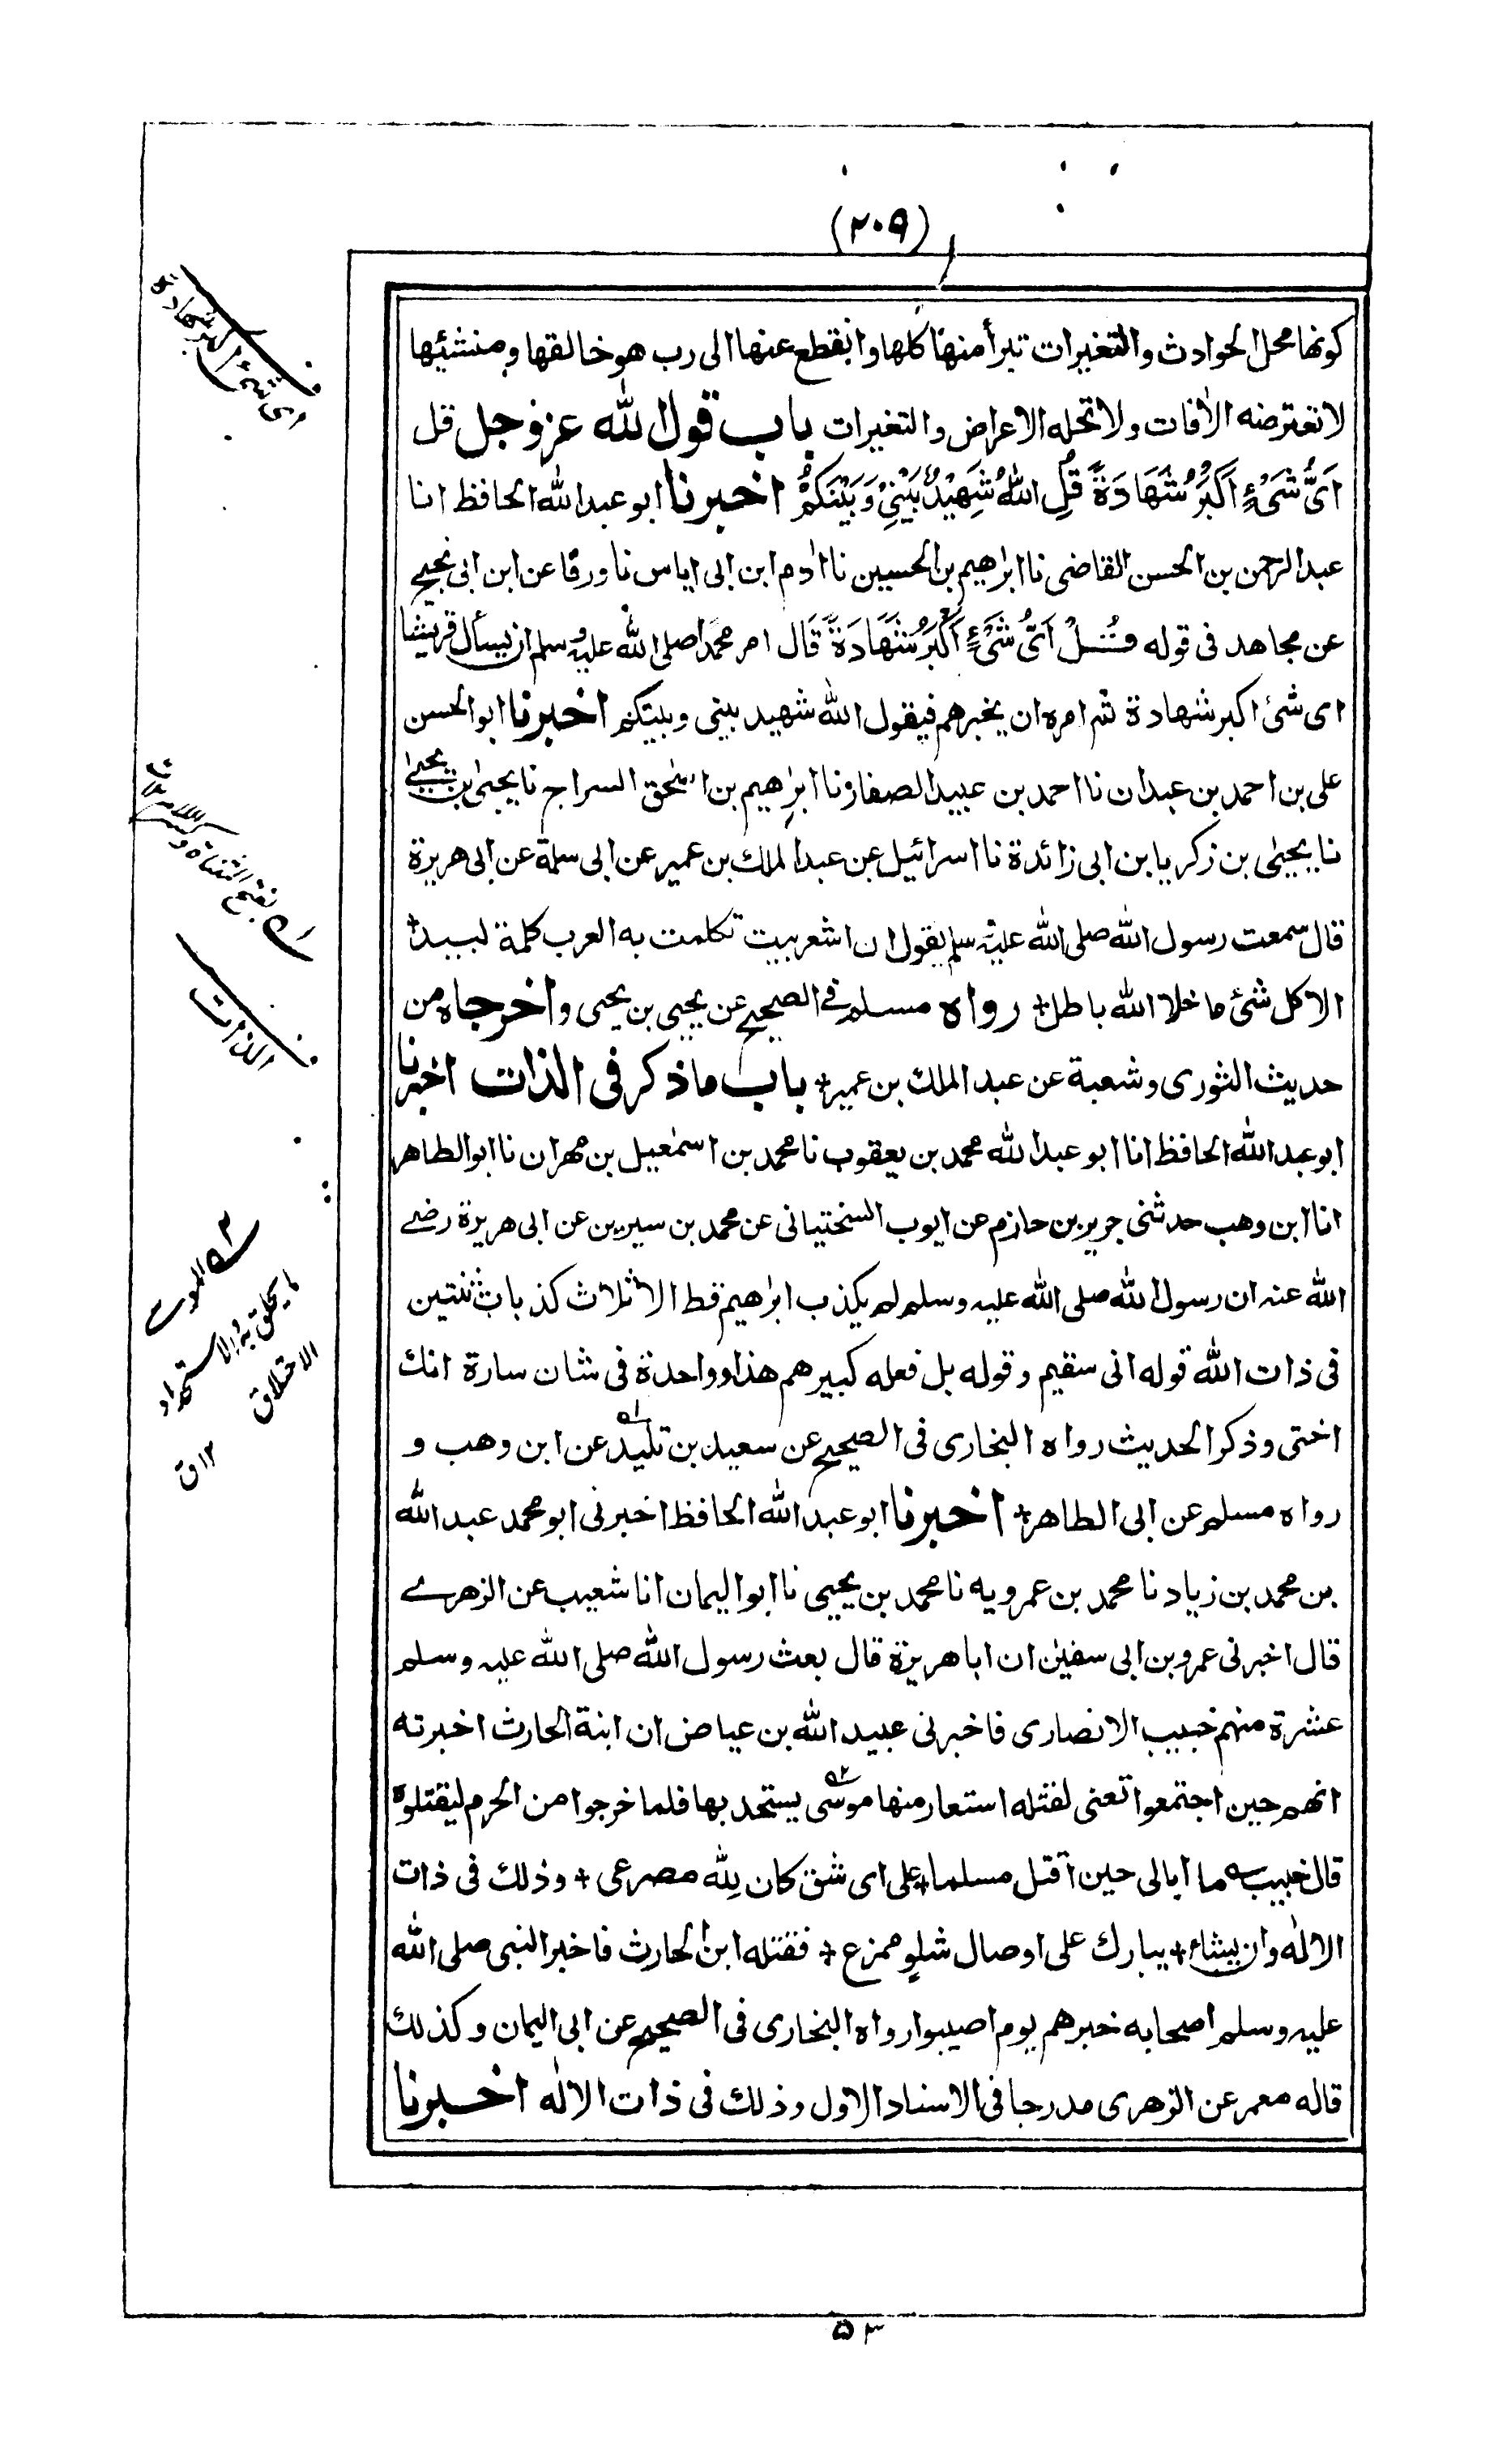 (٢٠٩)
كونها محل الحوادث والتغيرات تبرأ منها كلها وانقطع عنها الى رب هو خالقها ومنشئها
لا تعترضه الأفات ولا تحله الاعراض والتغيرات باب قول الله عزوجل قل
اَىُّ شَىْءٍ اَكْبَرُ شَهَادَةً قُلِ اللهُ شَهِيْدٌ بَيْنِىْ وَبَيْنَكُمْ اخبرنا ابو عبدالله الحافظ انا
عبدالرحمن بن الحسن القاضى نا ابراهيم بن الحسين نا ادم ابن ابى اياس نا ورقا عن ابن ابى نجيح
عن مجاهد فى قوله قُلْ اَىُّ شَىْءٍ اَكْبَرُ شَهَادَةً قَالَ امر محمدا صلى الله عليه وسلم ان يسأل قريشا
اى شئ اكبر شهادة ثم امره ان يخبرهم فيقول الله شهيد بينى وبينكم اخبرنا ابو الحسن
على بن احمد بن عبدان نا احمد بن عبيد الصفار نا ابرٰهيم بن اسٰحق السراج نا يحيىٰ بن يحيىٰ
نا يحيىٰ بن زكريا بن ابى زائدة نا اسرائيل عن عبد الملك بن عمير عن ابى سلمة عن ابى هريرة
قال سمعت رسول الله صلى الله عليه وسلم يقول ان اشعر بيت تكلمت به العرب كلمة لبيد+
الا كل شئ ما خلا الله باطل+ رواه مسلم فى الصحيح عن يحيى بن يحيى واخرجاه من
حديث الثورى وشعبة عن عبد الملك بن عمير+ باب ما ذكر فى الذات اخبرنا
ابو عبد الله الحافظ انا ابو عبد الله محمد بن يعقوب نا محمد بن اسمٰعيل بن مهران نا ابو الطاهر
انا ابن وهب حدثنى جرير بن حازم عن ايوب السختيانى عن محمد بن سيرين عن ابى هريرة رضے
الله عنه ان رسول الله صلى الله عليه وسلم لم يكذب ابرٰهيم قط الا ثلاث كذبات ثنتين
فى ذات الله قوله انى سقيم وقوله بل فعله كبيرهم هذا وواحدة فى شان سارة انك
اختى وذكر الحديث رواه البخارى فى الصحيح عن سعيد بن تليد عن ابن وهب و
رواه مسلم عن ابى الطاهر+ اخبرنا ابو عبد الله الحافظ اخبرنى ابو محمد عبد الله
بن محمد بن زياد نا محمد بن عمرويه نا محمد بن يحيى نا ابو اليمان انا شعيب عن الزهرے
قال اخبرنى عمرو بن ابى سفيٰن ان ابا هريرة قال بعث رسول الله صلى الله عليه وسلم
عشرة منهم خبيب الانصارى فاخبرنى عبيد الله بن عياض ان ابنة الحارث اخبرته
انهم حين اجتمعوا تعنى لقتله استعار منها موسٰى يستحد بها فلما خرجوا من الحرم ليقتلوه
قال خبيب ما ابالى حين اقتل مسلما+ على اى شق كان لِله مصرعى+ وذلك فى ذات
الالٰه وان يشاء+ يبارك على اوصال شلوٍ ممزع+ فقتله ابن الحارث فاخبر النبى صلى الله
عليه وسلم اصحابه خبرهم يوم اصيبوا رواه البخارى فى الصحيح عن ابى اليمان وكذلك
قاله معمر عن الزهرى مدرجا فى الاسناد الاول وذلك فى ذات الالٰه اخبرنا
اى شئ اكبر شهادة
الذات
٥٣